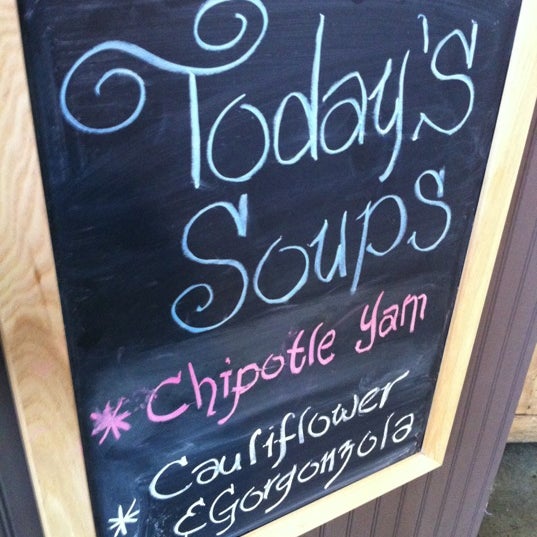 Today's
Soups
* Chipotle Yam
* Cauliflower
& Gorgonzola